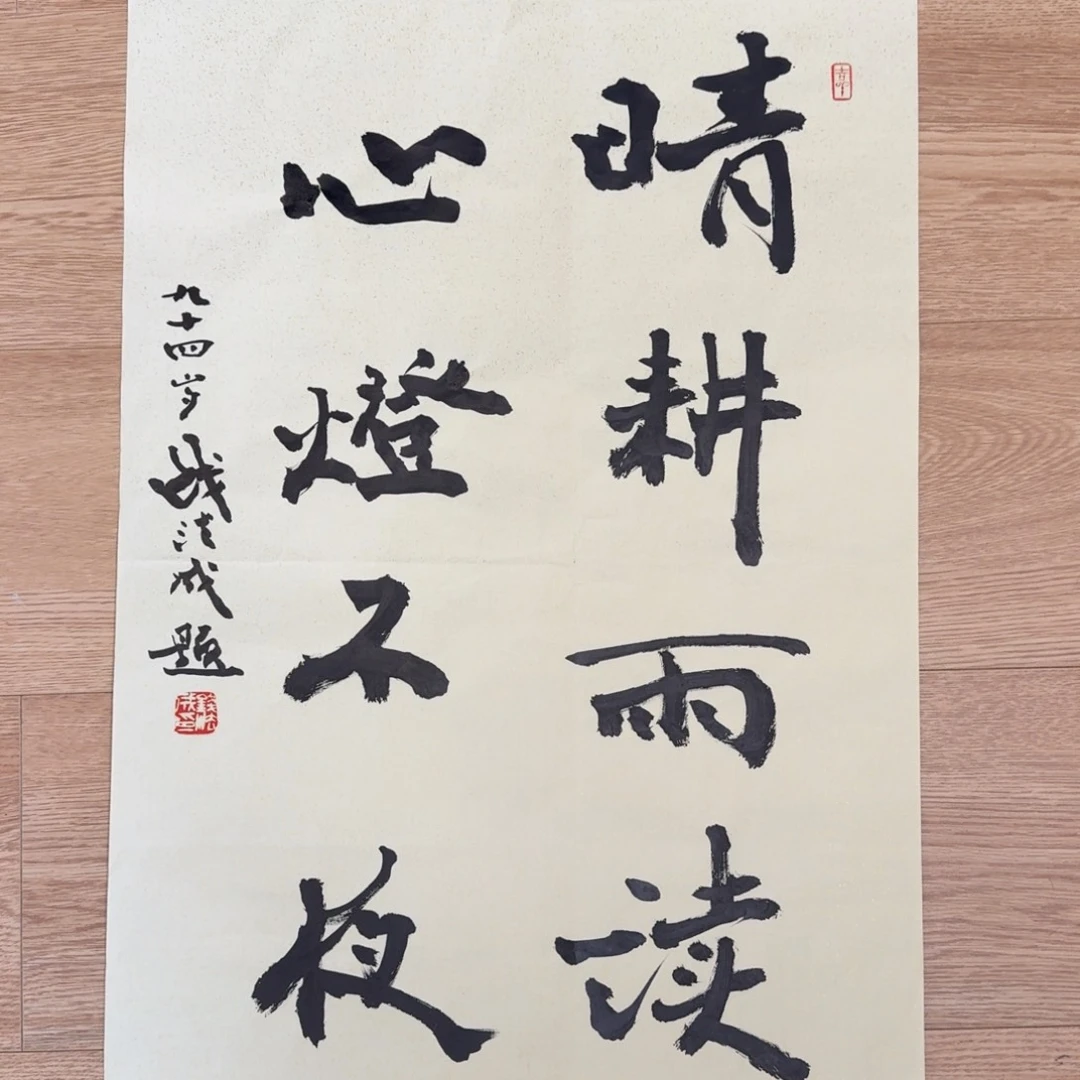 晴耕雨读
心燈不夜
九十四岁战法成题